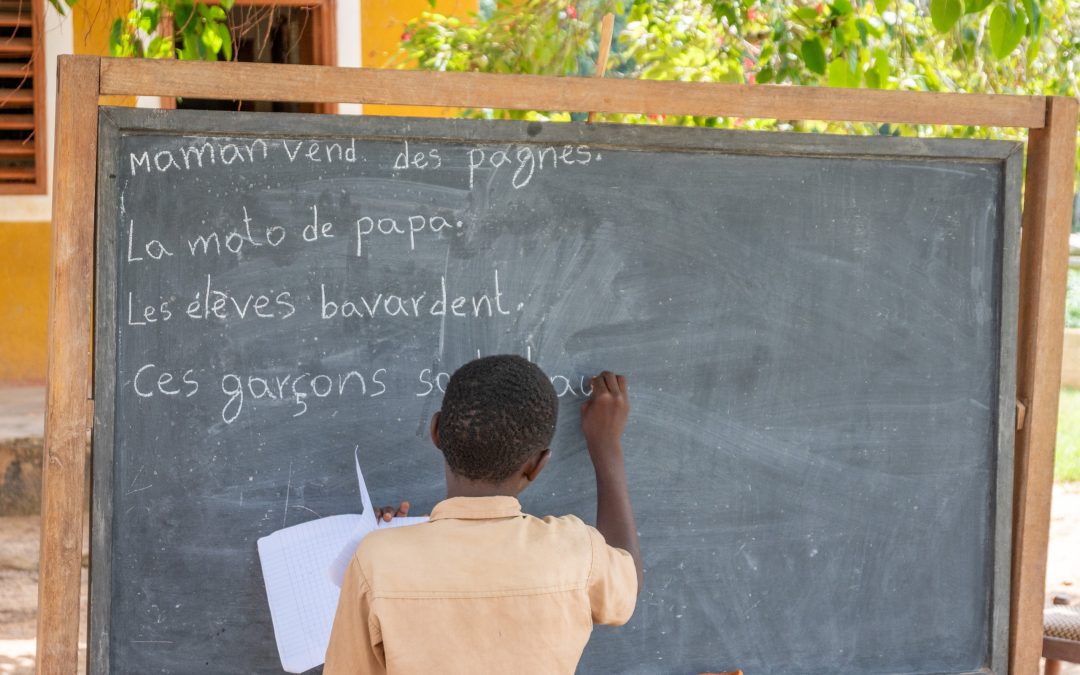 Maman vend des pagnes.
La moto de papa.
Les élèves bavardent.
Ces garçons